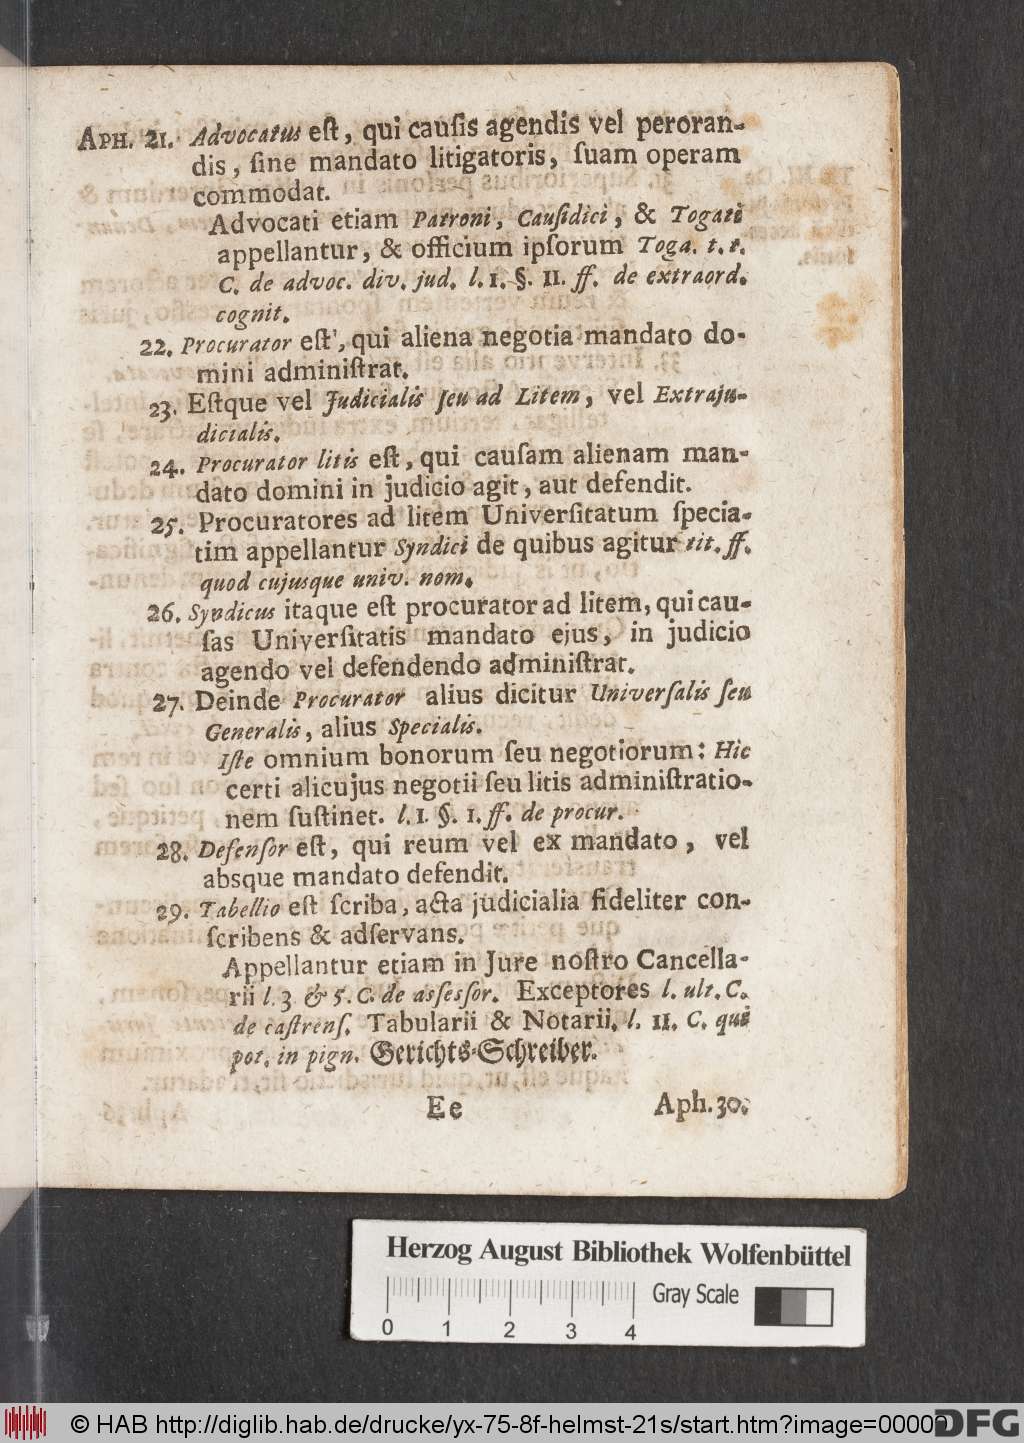 APH. 21. Advocatus eſt, qui cauſis agendis vel peroran-
dis, ſine mandato litigatoris, ſuam operam
commodat.
Advocati etiam Patroni, Cauſidici, & Togati
appellantur, & officium ipſorum Toga. t. t.
C. de advoc. div. jud. l. 1. §. 11. ff. de extraord.
cognit.
22. Procurator eſt, qui aliena negotia mandato do-
mini adminiſtrat.
23. Eſtque vel Judicialis ſeu ad Litem, vel Extraju-
dicialis.
24. Procurator litis eſt, qui cauſam alienam man-
dato domini in judicio agit, aut defendit.
25. Procuratores ad litem Univerſitatum ſpecia-
tim appellantur Syndici de quibus agitur tit. ff.
quod cujusque univ. nom.
26. Syndicus itaque eſt procurator ad litem, qui cau-
ſas Univerſitatis mandato ejus, in judicio
agendo vel defendendo adminiſtrat.
27. Deinde Procurator alius dicitur Univerſalis ſeu
Generalis, alius Specialis.
Iſte omnium bonorum ſeu negotiorum: Hic
certi alicujus negotii ſeu litis adminiſtratio-
nem ſuſtinet. l. 1. §. 1. ff. de procur.
28. Defenſor eſt, qui reum vel ex mandato, vel
absque mandato defendit.
29. Tabellio eſt ſcriba, acta judicialia fideliter con-
ſcribens & adſervans.
Appellantur etiam in Jure noſtro Cancella-
rii l. 3 & 5. C. de aſſeſſor. Exceptores l. ult. C.
de caſtrenſ. Tabularii & Notarii. l. 11. C. qui
pot. in pign. Gerichts-Schreiber.
Ee Aph. 30.
Herzog August Bibliothek Wolfenbüttel
Gray Scale
0 1 2 3 4
© HAB http://diglib.hab.de/drucke/yx-75-8f-helmst-21s/start.htm?image=00009
DFG